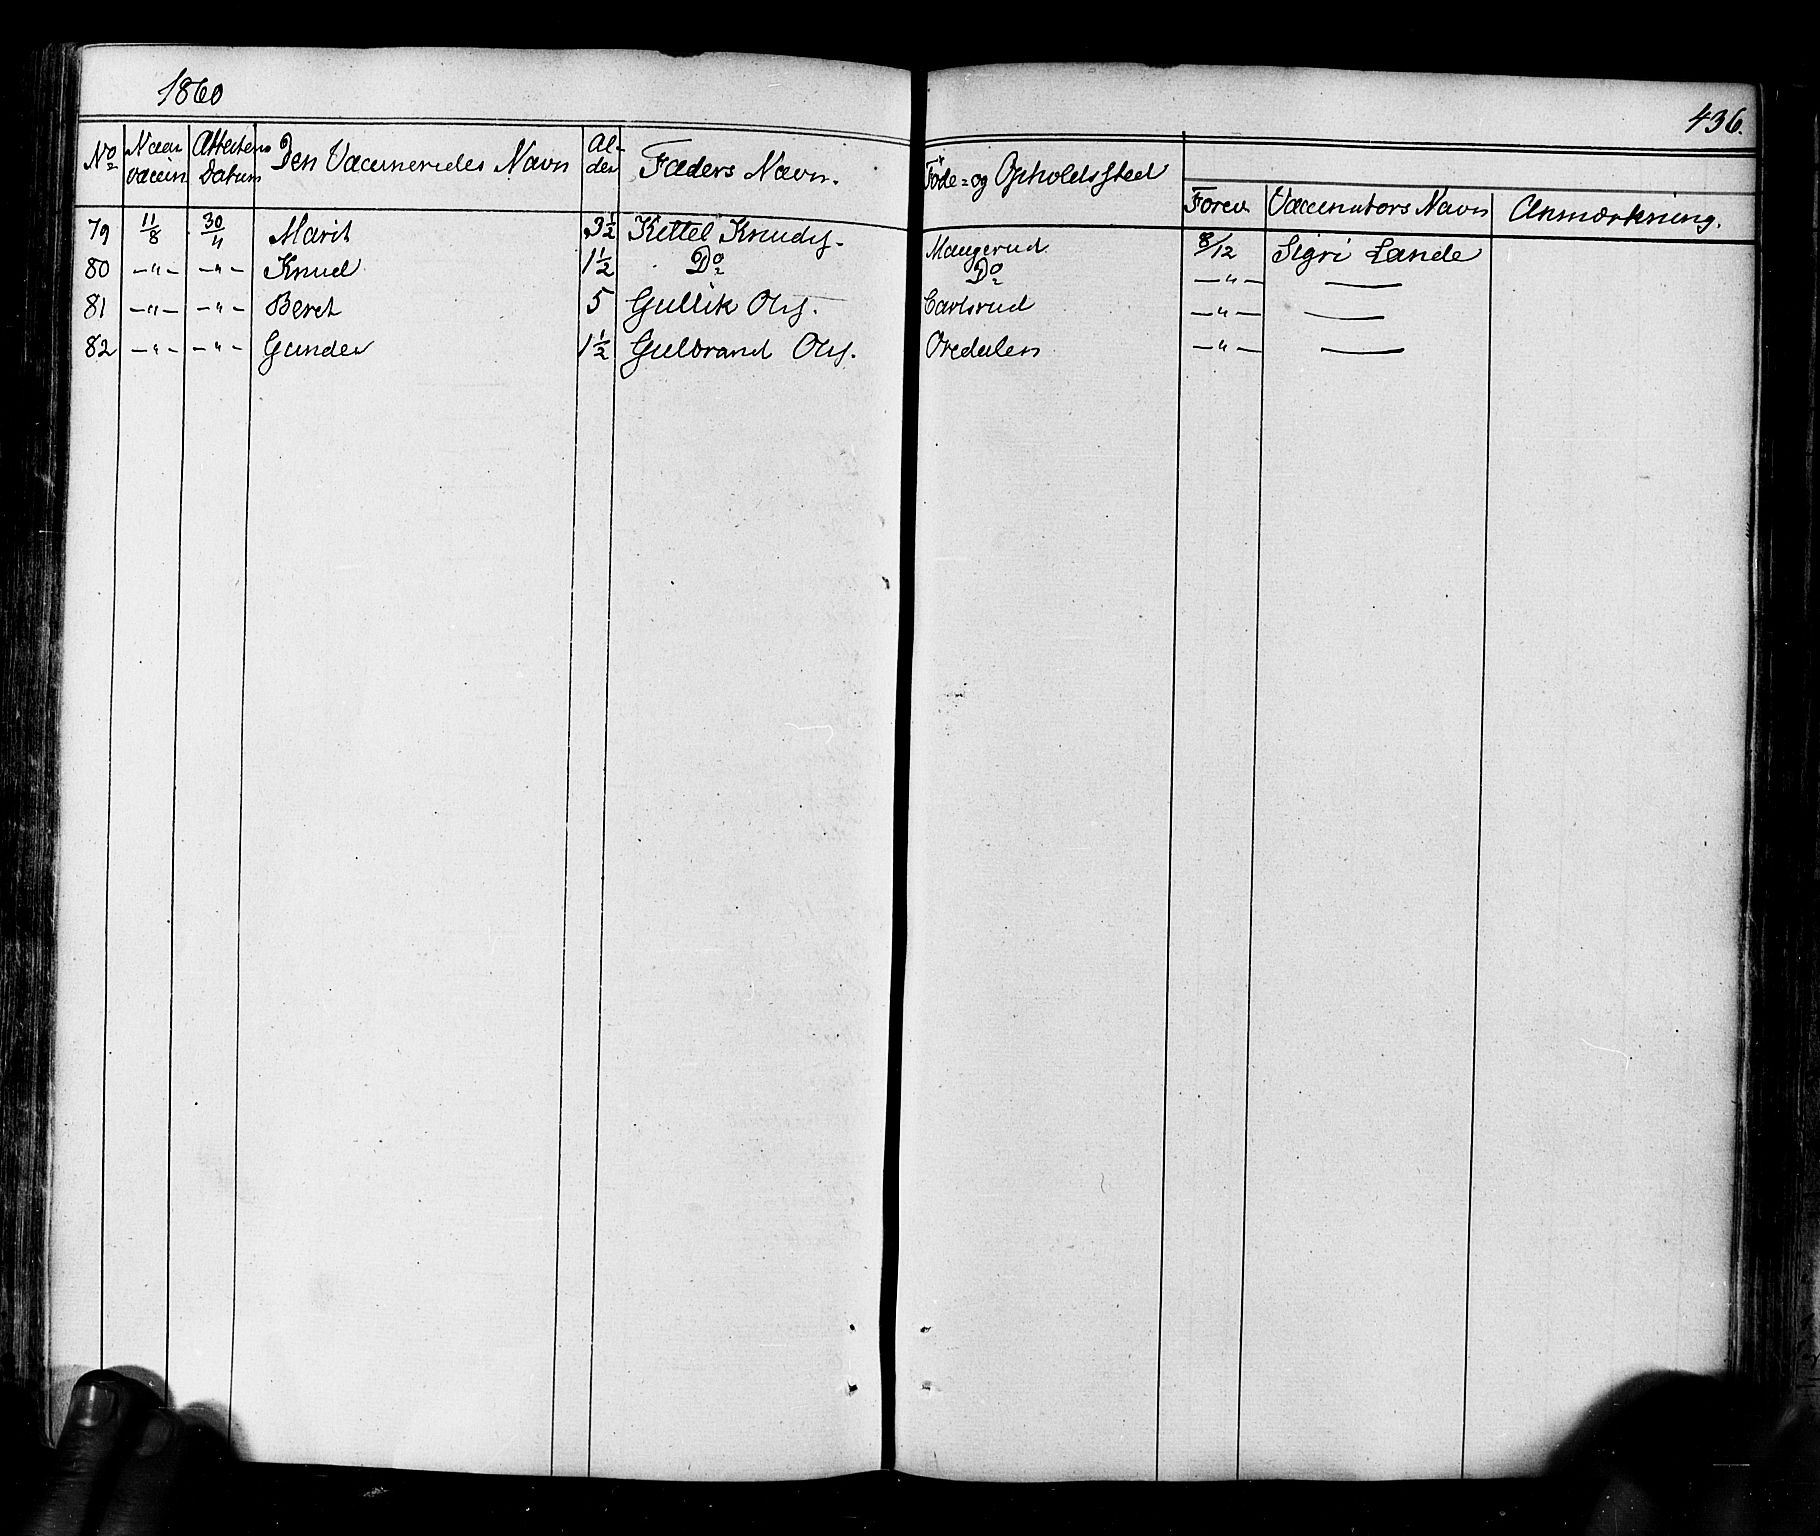 1860
436.
No Naar vaccin Attestens Datum Den Vaccineredes Navn Alder Faders Navn. Føde- og Opholdssted Forev Vaccinators Navn Anmærkning.
79 11/8 30/11 Marit 3 1/2 Kittel Knuds. Maugerud 8/12 Sigri Lande
80 —"— —"— Knud 1 1/2 Do Do —"— ——
81 —"— —"— Beret 5 Gullik Ols. Carlsrud —"— ——
82 —"— —"— Gunder 1 1/2 Gulbrand Ols. Oredalen —"— ——